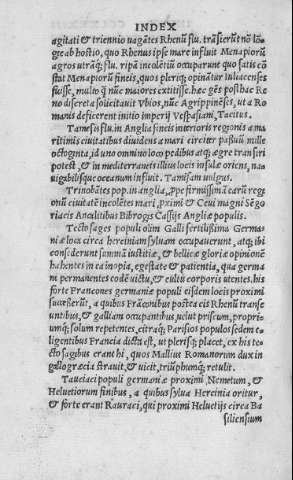 INDEX
agitati & triennio uagātes Rhenū flu. trāsierūt nō lō-
ge ab hostio, quo Rhenus ipse mare influit Menapiorū
agros utrāq; flu. ripā incolētiū occuparunt quo satis cō
stat Menapiorū fineis, quos pleriq; opinātur Iuliacenses
fuisse, multo q̃ nūc maiores extitisse. hæc gēs posthac Re
no discreta solicitauit Vbios, nūc Agrippinēses, ut a Ro
manis deficerent initio imperij Vespasiani, Tacitus.
Tamesis flu. in Anglia fineis interioris regionis a ma
ritimis ciuitatibus diuidens a mari circiter passuū mille
octoginta, id uno omnino loco pedibus atq; ægre transiri
potest, & in mediterraneis illius locis insulæ oriens, na-
uigabilisque oceanum influit. Tamisam uulgus.
Trinobātes pop. in anglia, ꝓpe firmissima earū regi
onū ciuitatē incolētes mari, ꝓximi & Ceui magni Sēgo
riacis Ancalitibus Bibrogis Cassijs Angliæ populis.
Tectosages populi olim Galli fertilissima Germa
niæ loca circa herciniam syluam occupauerunt, atq; ibi
considerunt summā iustitiæ, & bellicæ gloriæ opinionē
habentes in ea inopia, egestate & patientia, qua germa
ni permanentes eodē uictu, & cultu corporis utentes. his
forte Francones germaniæ populi eisdem locis proximi
successerūt, a quibus Frāconibus postea eis Rhenū transe
untibus, & galliam occupantibus, uelut priscum, propri-
umq; solum repetentes, citraq; Parisios populos sedem e-
ligentibus Francia dicta est, ut plerisq; placet, ex his te-
ctosagibus erant hi, quos Mallius Romanorum dux in
gallogræcia strauit, & uicit, triūphumq; retulit.
Tauciaci populi germaniæ proximi Nemetum, &
Heluetiorum finibus, a quibus sylua Hercinia oritur,
& forte erant Rauraci, qui proximi Heluetijs circa Ba
siliensium